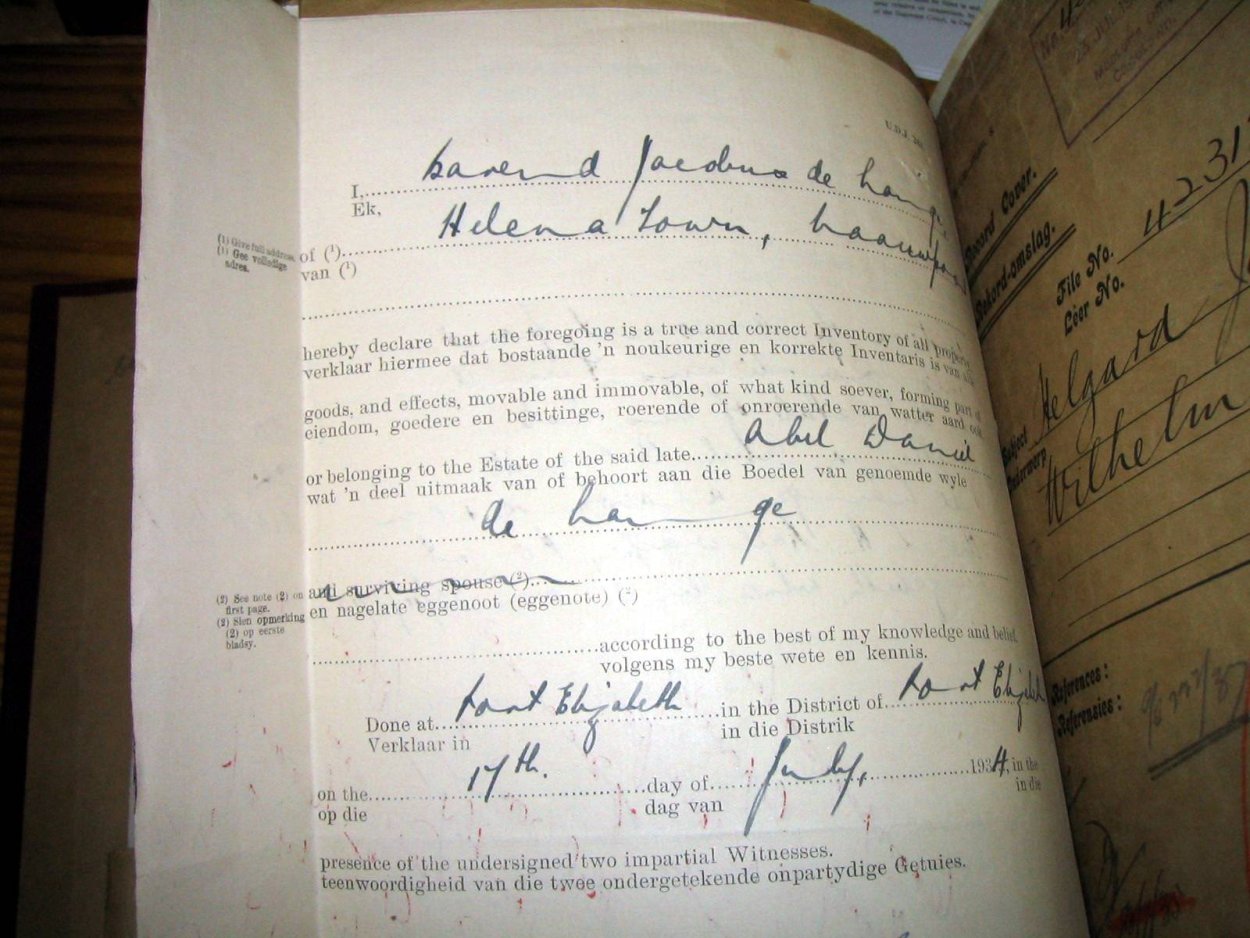 U.D.J.
I, Barend Jacobus de Lange
Ek,
(1) Give full address.
(1) Gee volledige adres.
of (1) Helena Town,
van (1)
hereby declare that the foregoing is a true and correct Inventory of all property,
verklaar hiermee dat bostaande 'n noukeurige en korrekte Inventaris is van alle
goods, and effects, movable and immovable, of what kind soever, forming part of
eiendom, goedere en besittinge, roerende of onroerende van watter aard ook
or belonging to the Estate of the said late Abel Daniel
wat 'n deel uitmaak van of behoort aan die Boedel van genoemde wyle
de Lange
and surviving spouse (2)
en nagelate eggenoot (eggenote) (2)
(2) See note (2) on
first page.
(2) Sien opmerking
(2) op eerste
bladsy.
according to the best of my knowledge and belief.
volgens my beste wete en kennis.
Done at Port Elizabeth in the District of Port Elizabeth
Verklaar in in die Distrik
on the 17th. day of July, 1934, in the
op die dag van in die
presence of the undersigned two impartial Witnesses.
teenwoordigheid van die twee ondergetekende onpartydige Getuies.
Record Cover.
Rekord-omslag.
File No. 4231
Lêer No.
Subject Helgard
Onderwerp
Wilhelm
References:
Referensies: